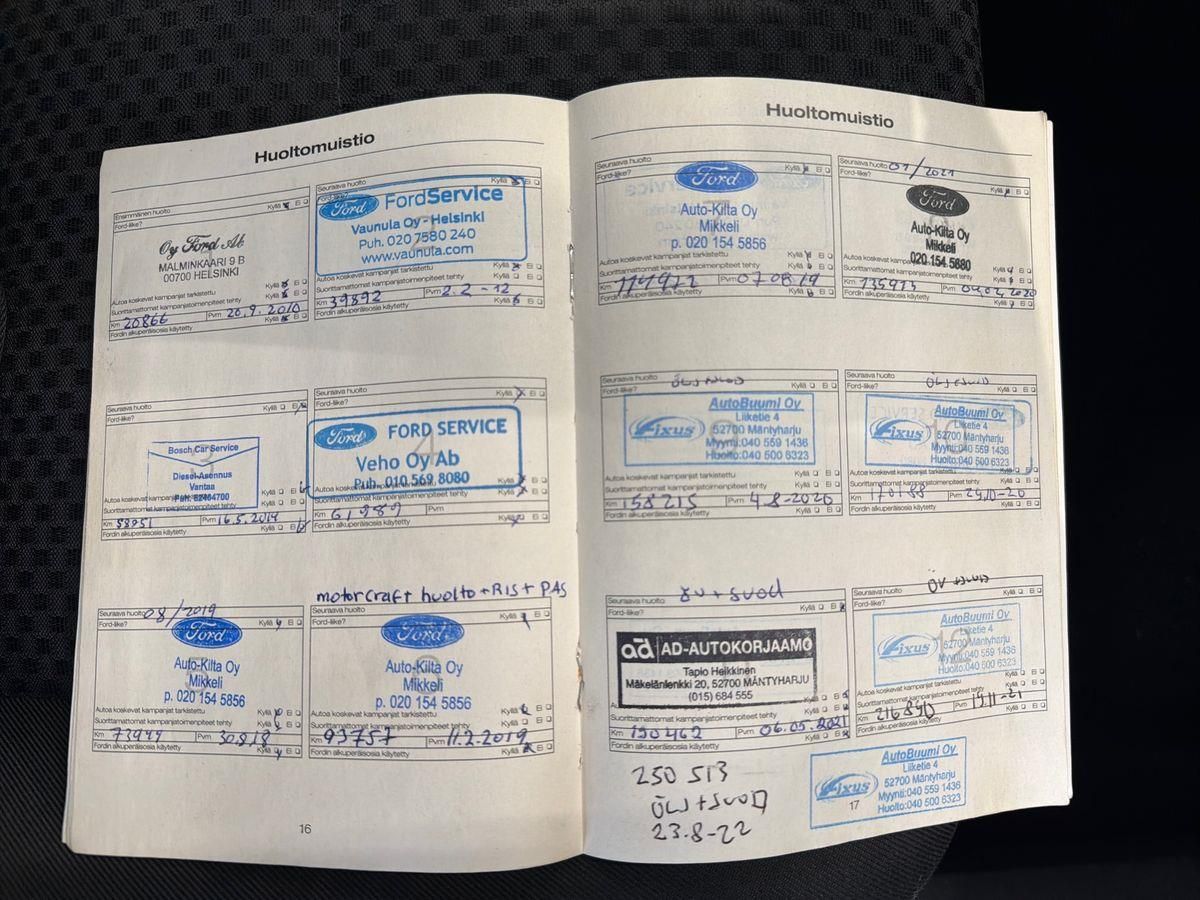 Huoltomuistio
Ensimmäinen huolto
Ford-liike? Kyllä Ei
Oy Ford Ab
MALMINKAARI 9 B
00700 HELSINKI
Kyllä Ei
Autoa koskevat kampanjat tarkistettu
Suorittamattomat kampanjatoimenpiteet tehty Kyllä Ei
Km 20866 Pvm 20.9.2010
Fordin alkuperäisosia käytetty Kyllä Ei
Seuraava huolto
Kyllä Ei
Ford FordService
Vaunula Oy - Helsinki
Puh. 020 7580 240
www.vaunula.com
Autoa koskevat kampanjat tarkistettu Kyllä Ei
Suorittamattomat kampanjatoimenpiteet tehty Kyllä Ei
Km 39892 Pvm 2.2-12
Fordin alkuperäisosia käytetty Kyllä Ei
Seuraava huolto
Ford-liike? Kyllä Ei
3
Bosch Car Service
Diesel-Asennus
Vantaa
Puh. 82464700
Autoa koskevat kampanjat tarkistettu Kyllä Ei
Suorittamattomat kampanjatoimenpiteet tehty Kyllä Ei
Km 58951 Pvm 16.5.2014
Fordin alkuperäisosia käytetty Kyllä Ei
Seuraava huolto
Ford-liike? Kyllä Ei
4
Ford FORD SERVICE
Veho Oy Ab
Puh. 010 569 8080
Autoa koskevat kampanjat tarkistettu Kyllä Ei
Suorittamattomat kampanjatoimenpiteet tehty Kyllä Ei
Km 61989 Pvm
Fordin alkuperäisosia käytetty Kyllä Ei
Seuraava huolto 08/2019
Ford-liike? Kyllä Ei
Ford
Auto-Kilta Oy
Mikkeli
p. 020 154 5856
Autoa koskevat kampanjat tarkistettu Kyllä Ei
Suorittamattomat kampanjatoimenpiteet tehty Kyllä Ei
Km 73944 Pvm 30.8.18
Fordin alkuperäisosia käytetty Kyllä Ei
motorcraft huolto + RIS + PAS
Seuraava huolto
Ford-liike? Kyllä Ei
Ford
Auto-Kilta Oy
Mikkeli
p. 020 154 5856
Autoa koskevat kampanjat tarkistettu Kyllä Ei
Suorittamattomat kampanjatoimenpiteet tehty Kyllä Ei
Km 93757 Pvm 11.2.2019
Fordin alkuperäisosia käytetty Kyllä Ei
16
Huoltomuistio
Seuraava huolto
Ford-liike? Kyllä Ei
Ford
Auto-Kilta Oy
Mikkeli
p. 020 154 5856
Autoa koskevat kampanjat tarkistettu Kyllä Ei
Suorittamattomat kampanjatoimenpiteet tehty Kyllä Ei
Km 114972 Pvm 07.08.19
Fordin alkuperäisosia käytetty Kyllä Ei
Seuraava huolto 01/2021
Ford-liike? Kyllä Ei
Ford
Auto-Kilta Oy
Mikkeli
020 154 5880
Autoa koskevat kampanjat tarkistettu Kyllä Ei
Suorittamattomat kampanjatoimenpiteet tehty Kyllä Ei
Km 135973 Pvm
Fordin alkuperäisosia käytetty Kyllä Ei
Seuraava huolto
Ford-liike? Kyllä Ei
Fixus AutoBuumi Oy
Liiketie 4
52700 Mäntyharju
Myynti:040 559 1436
Huolto:040 500 6323
Autoa koskevat kampanjat tarkistettu Kyllä Ei
Suorittamattomat kampanjatoimenpiteet tehty Kyllä Ei
Km 158215 Pvm 4.8-2020
Fordin alkuperäisosia käytetty Kyllä Ei
Seuraava huolto
Ford-liike? Kyllä Ei
10
Fixus AutoBuumi Oy
Liiketie 4
52700 Mäntyharju
Myynti:040 559 1436
Huolto:040 500 6323
Autoa koskevat kampanjat tarkistettu Kyllä Ei
Suorittamattomat kampanjatoimenpiteet tehty Kyllä Ei
Km 170188 Pvm
Fordin alkuperäisosia käytetty Kyllä Ei
Seuraava huolto öv + suod
Ford-liike? Kyllä Ei
ad AD-AUTOKORJAAMO
Tapio Heikkinen
Mäkelänlenkki 20, 52700 MÄNTYHARJU
(015) 684 555
Autoa koskevat kampanjat tarkistettu Kyllä Ei
Suorittamattomat kampanjatoimenpiteet tehty Kyllä Ei
Km 190462 Pvm 06.05.2021
Fordin alkuperäisosia käytetty Kyllä Ei
Seuraava huolto
Ford-liike? Kyllä Ei
12
Fixus AutoBuumi Oy
Liiketie 4
52700 Mäntyharju
Myynti:040 559 1436
Huolto:040 500 6323
Autoa koskevat kampanjat tarkistettu Kyllä Ei
Suorittamattomat kampanjatoimenpiteet tehty Kyllä Ei
Km Pvm
Fordin alkuperäisosia käytetty Kyllä Ei
250 513
ÖLJ+SUOD
23.8-22
Fixus AutoBuumi Oy
Liiketie 4
52700 Mäntyharju
Myynti:040 559 1436
Huolto:040 500 6323
17